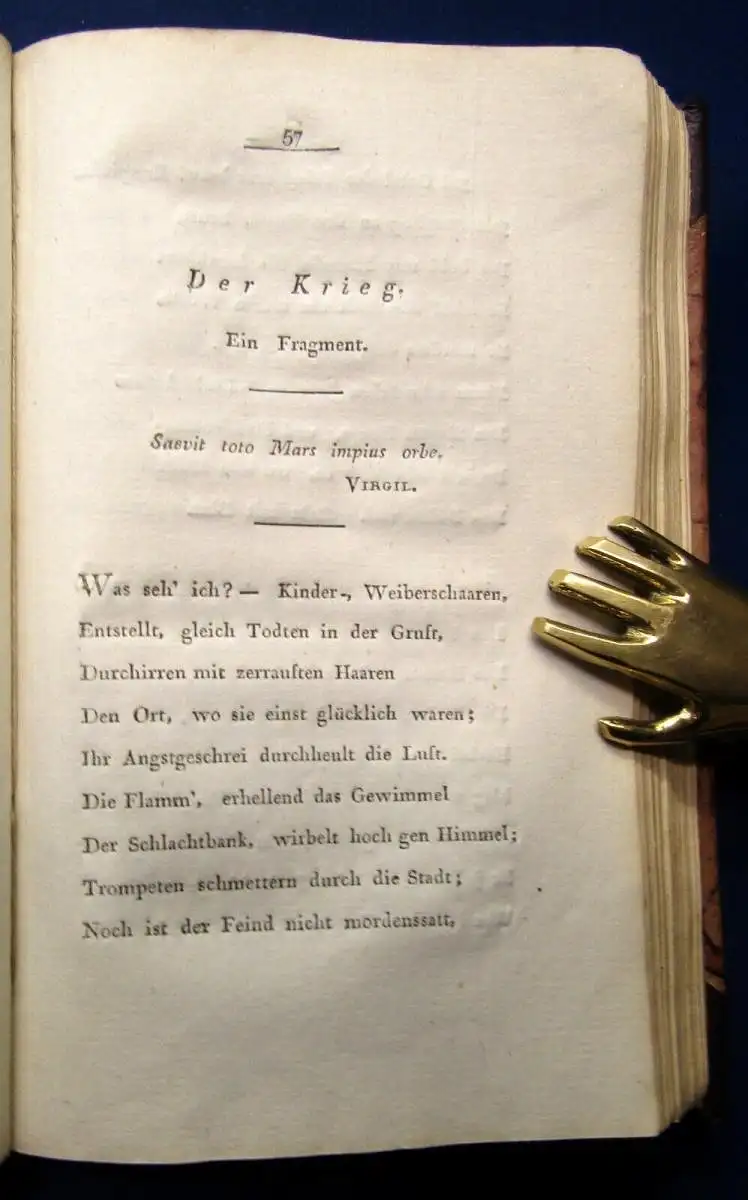 57
Der Krieg.
Ein Fragment.
Saevit toto Mars impius orbe.
VIRGIL.
Was seh' ich? — Kinder-, Weiberschaaren,
Entstellt, gleich Todten in der Gruft,
Durchirren mit zerrauften Haaren
Den Ort, wo sie einst glücklich waren;
Ihr Angstgeschrei durchheult die Luft.
Die Flamm', erhellend das Gewimmel
Der Schlachtbank, wirbelt hoch gen Himmel;
Trompeten schmettern durch die Stadt;
Noch ist der Feind nicht mordenssatt,